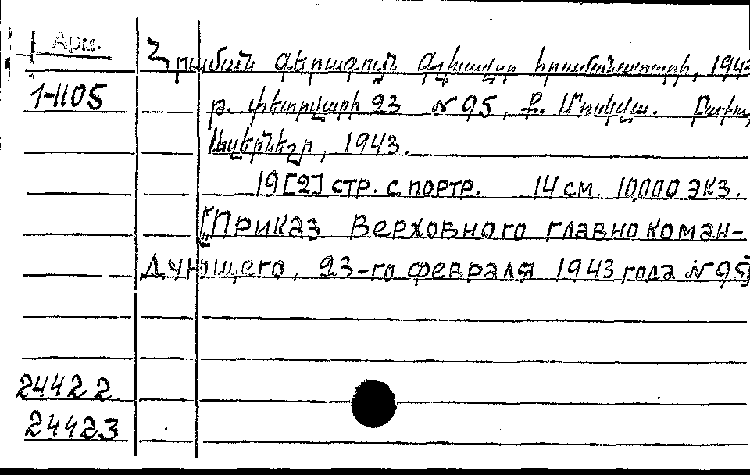 Арм.
Հրաման գերագույն գլխավոր հրամանատարի, 1943
1-1105
թ. փետրվարի 23 N 95, ք. Մոսկվա. Բաքու,
Ազերնեշր, 1943.
19 [2] стр. с портр. 14 см. 10,000 экз.
[Приказ Верховного главнокоман-
дующего, 23-го февраля 1943 года N 95]
24422
24423